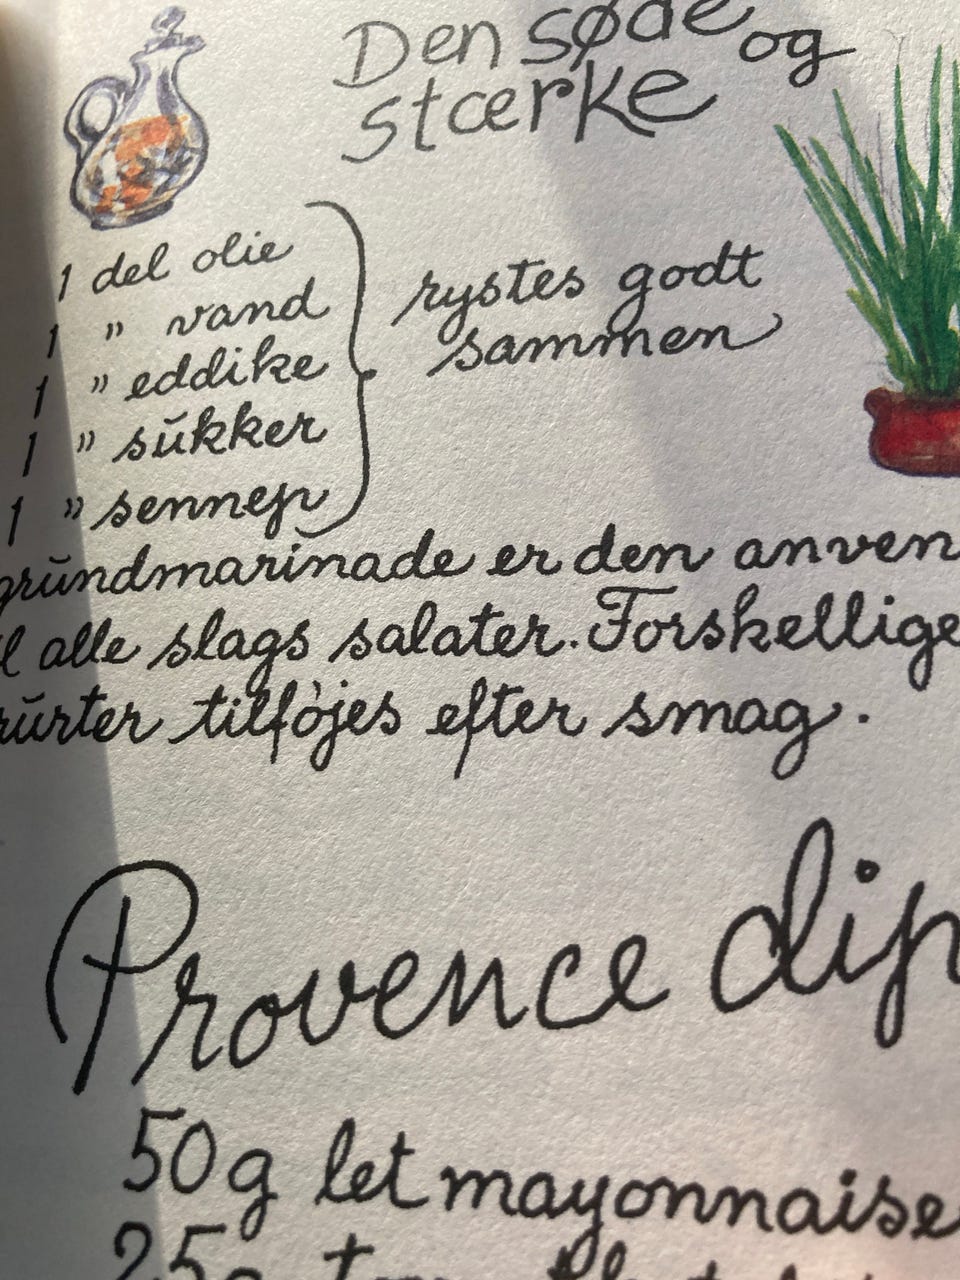 Den søde og
stærke
1 del olie
1 " vand
1 " eddike
1 " sukker
1 " sennep
rystes godt
sammen
grundmarinade er den anven
l alle slags salater. Forskellige
rurter tilføjes efter smag.
Provence dip
50 g let mayonnaise
25 g